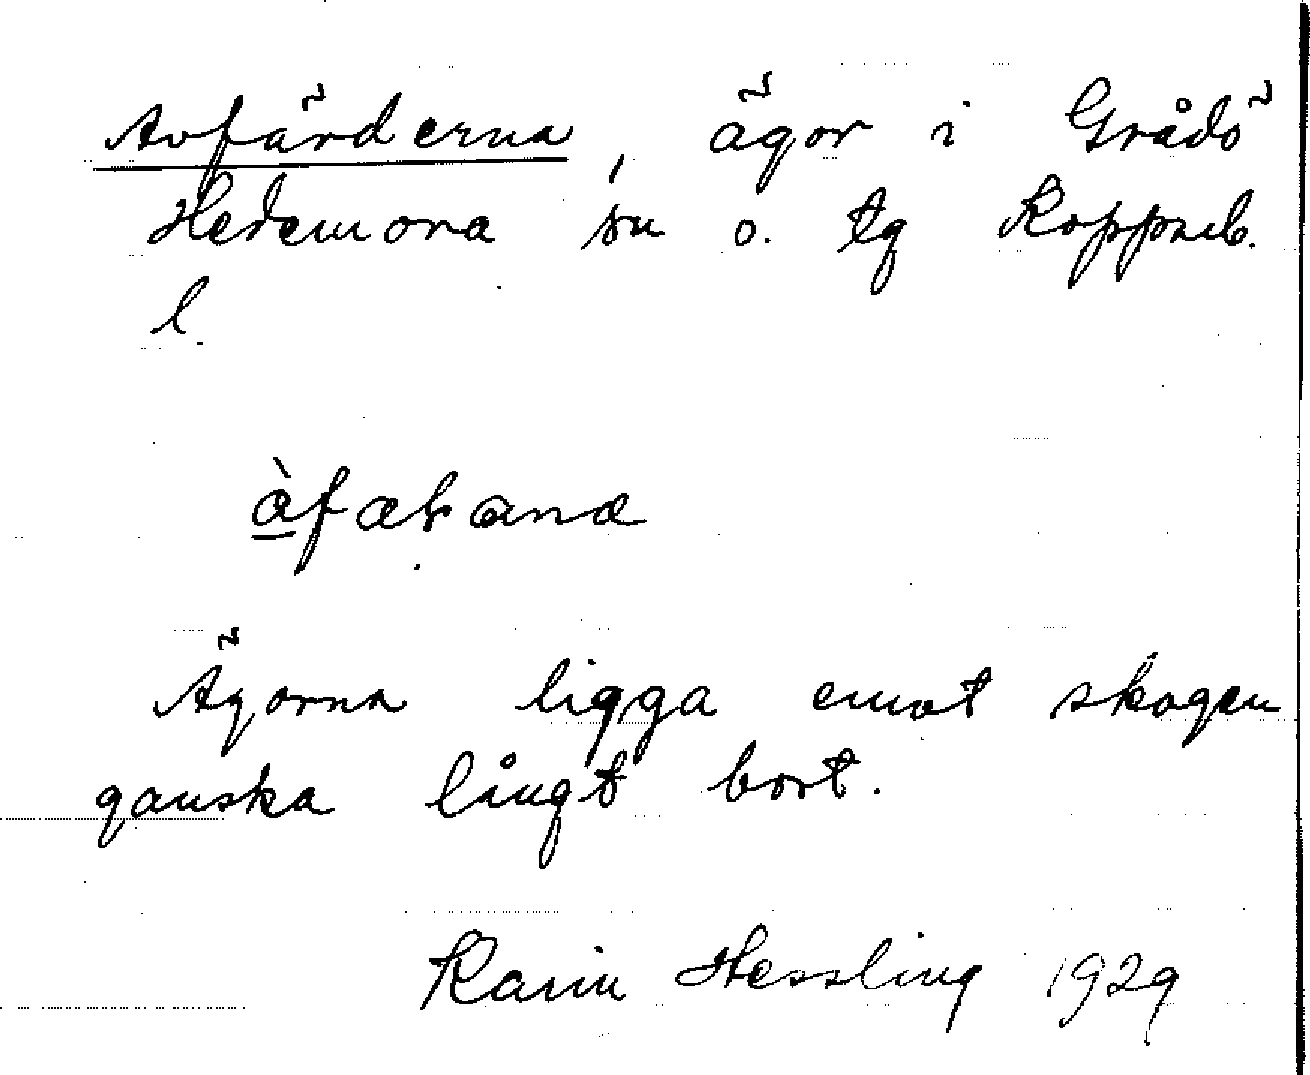 Avfärderna, ägor i Grådö
Hedemora sn o. tg Kopparb.
l.
àfæbana
Ägorna ligga emot skogen
ganska långt bort.
Karin Hessling 1929